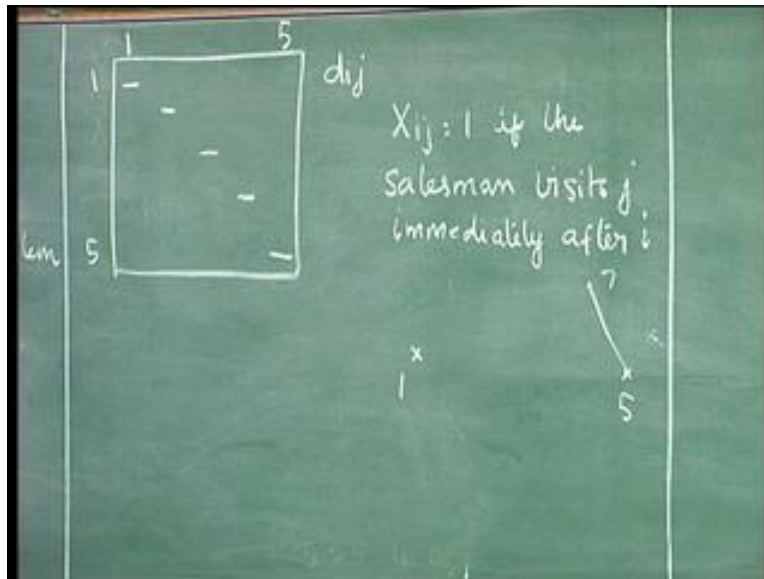 1 5
1 dij
Xij = 1 if the
Salesman visits j
immediately after i
lem 5
7
x
1
5